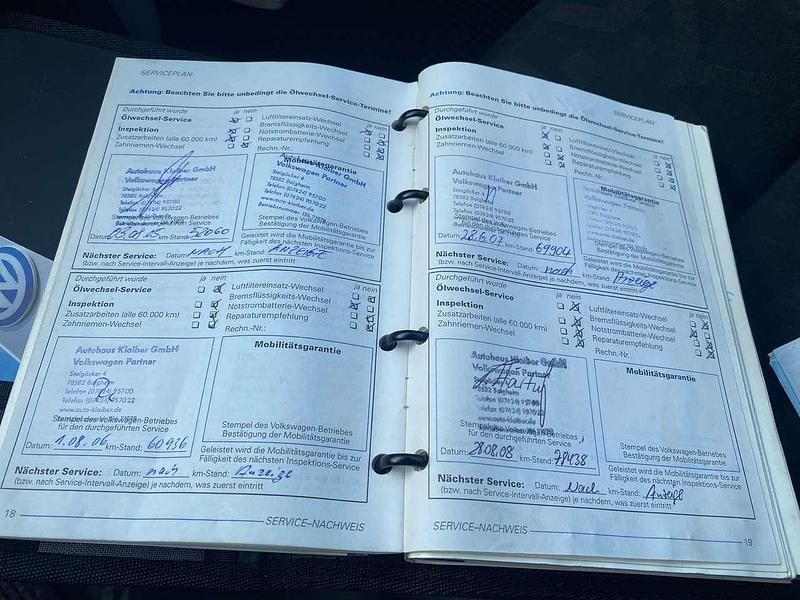 SERVICEPLAN
Achtung: Beachten Sie bitte unbedingt die Ölwechsel-Service-Termine!
Durchgeführt wurde ja nein
Ölwechsel-Service
Inspektion
Zusatzarbeiten (alle 60.000 km)
Zahnriemen-Wechsel
ja nein
Luftfiltereinsatz-Wechsel
Bremsflüssigkeits-Wechsel
Notstrombatterie-Wechsel
Reparaturempfehlung
Rechn.-Nr.:
Autohaus Klaiber GmbH
Volkswagen Partner
Steigäcker 4
78582 Balgheim
Telefon (07424) 95700
Telefax (07424) 957022
Stempel des Volkswagen-Betriebes
für den durchgeführten Service
Datum: km-Stand: 52060
Mobilitätsgarantie
Autohaus Klaiber GmbH
Volkswagen Partner
Steigäcker 4
78582 Balgheim
Telefon (07424) 95700
Telefax (07424) 957022
Stempel des Volkswagen-Betriebes
Bestätigung der Mobilitätsgarantie
Geleistet wird die Mobilitätsgarantie bis zur
Fälligkeit des nächsten Inspektions-Service
Nächster Service: Datum: NACH km-Stand: ANZEIGE
(bzw. nach Service-Intervall-Anzeige) je nachdem, was zuerst eintritt
Durchgeführt wurde ja nein
Ölwechsel-Service
Inspektion
Zusatzarbeiten (alle 60.000 km)
Zahnriemen-Wechsel
ja nein
Luftfiltereinsatz-Wechsel
Bremsflüssigkeits-Wechsel
Notstrombatterie-Wechsel
Reparaturempfehlung
Rechn.-Nr.:
Autohaus Klaiber GmbH
Volkswagen Partner
Steigäcker 4
78582 Balgheim
Telefon (07424) 95700
Telefax (07424) 957022
www.auto-klaiber.de
Stempel des Volkswagen-Betriebes
für den durchgeführten Service
Datum: 1.08.06 km-Stand: 60936
Mobilitätsgarantie
Stempel des Volkswagen-Betriebes
Bestätigung der Mobilitätsgarantie
Geleistet wird die Mobilitätsgarantie bis zur
Fälligkeit des nächsten Inspektions-Service
Nächster Service: Datum: nach km-Stand: Anzeige
(bzw. nach Service-Intervall-Anzeige) je nachdem, was zuerst eintritt
18
SERVICE–NACHWEIS
SERVICEPLAN
Achtung: Beachten Sie bitte unbedingt die Ölwechsel-Service-Termine!
Durchgeführt wurde ja nein
Ölwechsel-Service
Inspektion
Zusatzarbeiten (alle 60.000 km)
Zahnriemen-Wechsel
ja nein
Luftfiltereinsatz-Wechsel
Bremsflüssigkeits-Wechsel
Notstrombatterie-Wechsel
Reparaturempfehlung
Rechn.-Nr.:
Autohaus Klaiber GmbH
Volkswagen Partner
Steigäcker 4
78582 Balgheim
Telefon (07424) 95700
Telefax (07424) 957022
Stempel des Volkswagen-Betriebes
für den durchgeführten Service
Datum: 26.6.07 km-Stand: 69904
Mobilitätsgarantie
Stempel des Volkswagen-Betriebes
Bestätigung der Mobilitätsgarantie
Geleistet wird die Mobilitätsgarantie bis zur
Fälligkeit des nächsten Inspektions-Service
Nächster Service: Datum: nach km-Stand: Anzeige
(bzw. nach Service-Intervall-Anzeige) je nachdem, was zuerst eintritt
Durchgeführt wurde ja nein
Ölwechsel-Service
Inspektion
Zusatzarbeiten (alle 60.000 km)
Zahnriemen-Wechsel
ja nein
Luftfiltereinsatz-Wechsel
Bremsflüssigkeits-Wechsel
Notstrombatterie-Wechsel
Reparaturempfehlung
Rechn.-Nr.:
Autohaus Klaiber GmbH
Volkswagen Partner
78582 Balgheim
Telefon (07424) 95700
Telefax (07424) 957022
Stempel des Volkswagen-Betriebes
für den durchgeführten Service
Datum: 28.08.08 km-Stand: 78438
Mobilitätsgarantie
Stempel des Volkswagen-Betriebes
Bestätigung der Mobilitätsgarantie
Geleistet wird die Mobilitätsgarantie bis zur
Fälligkeit des nächsten Inspektions-Service
Nächster Service: Datum: Nach km-Stand: Anzeige
(bzw. nach Service-Intervall-Anzeige) je nachdem, was zuerst eintritt
SERVICE–NACHWEIS
19